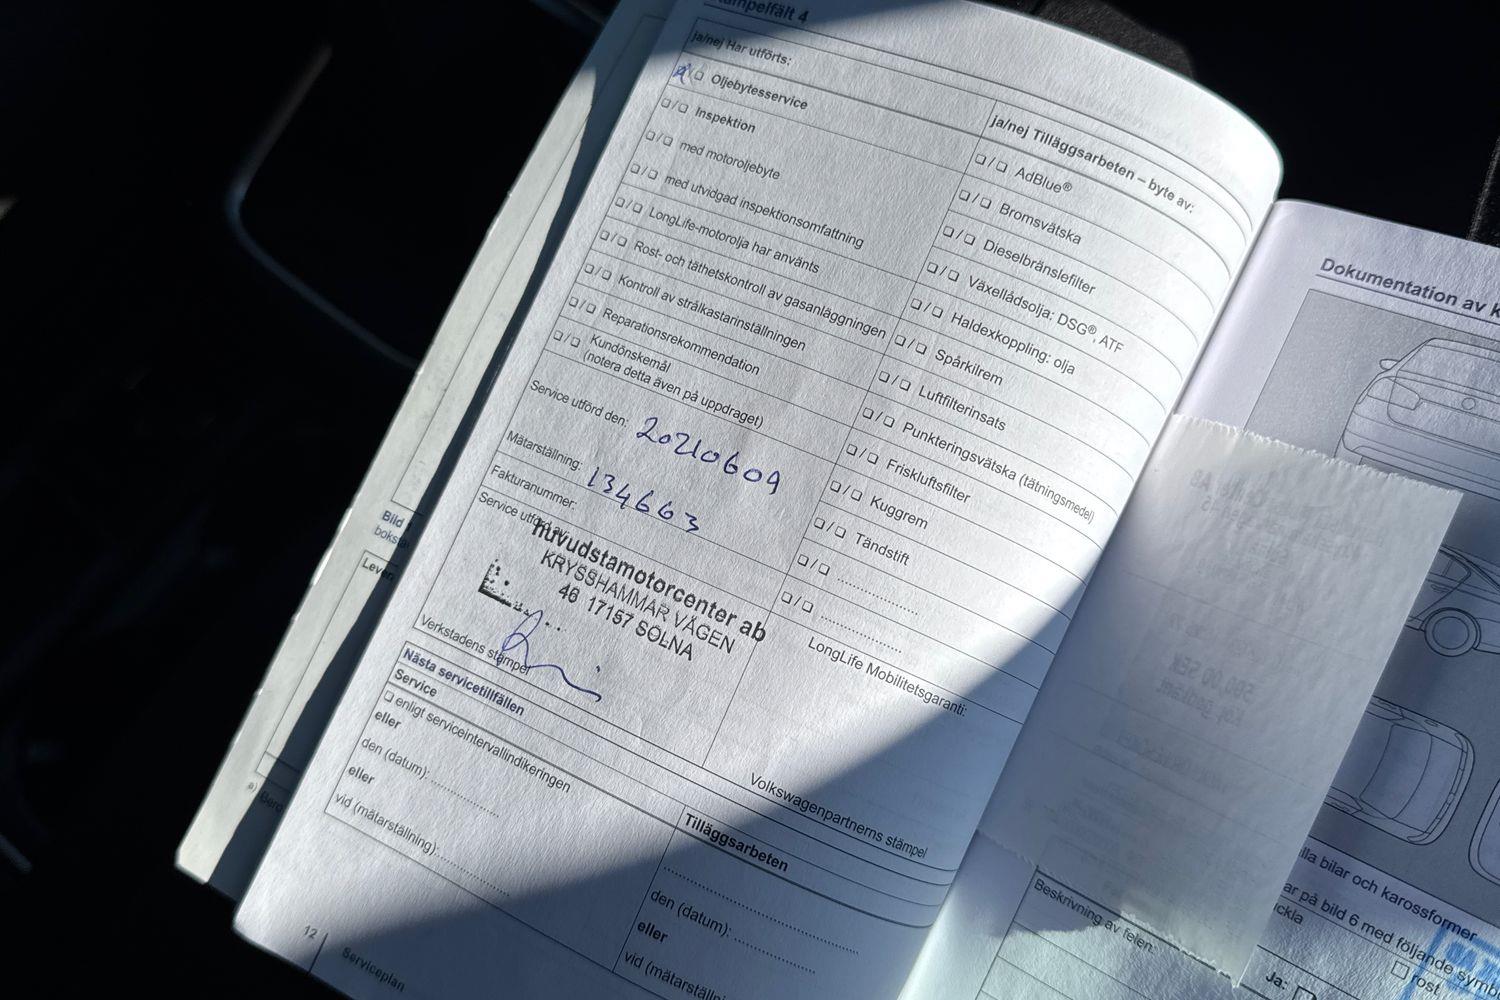 Stämpelfält 4
ja/nej Har utförts:
Oljebytesservice
Inspektion
med motoroljebyte
med utvidgad inspektionsomfattning
LongLife-motorolja har använts
Rost- och täthetskontroll av gasanläggningen
Kontroll av strålkastarinställningen
Reparationsrekommendation
Kundönskemål
(notera detta även på uppdraget)
Service utförd den: 20210609
Mätarställning: 134663
Fakturanummer:
Service utförd av:
huvudstamotorcenter ab
KRYSSHAMMAR VÄGEN
46 17157 SOLNA
Verkstadens stämpel
ja/nej Tilläggsarbeten – byte av:
AdBlue®
Bromsvätska
Dieselbränslefilter
Växellådsolja: DSG®, ATF
Haldexkoppling: olja
Spårkilrem
Luftfilterinsats
Punkteringsvätska (tätningsmedel)
Friskluftsfilter
Kuggrem
Tändstift
LongLife Mobilitetsgaranti:
Volkswagenpartnerns stämpel
Nästa servicetillfällen
Service
enligt serviceintervallindikeringen
eller
den (datum):
eller
vid (mätarställning):
Tilläggsarbeten
den (datum):
eller
vid (mätarställning
12
Serviceplan
Bild
Dokumentation av k
Beskrivning av felen:
lla bilar och karossformer
ar på bild 6 med följande symb
ckla
Ja:
rost